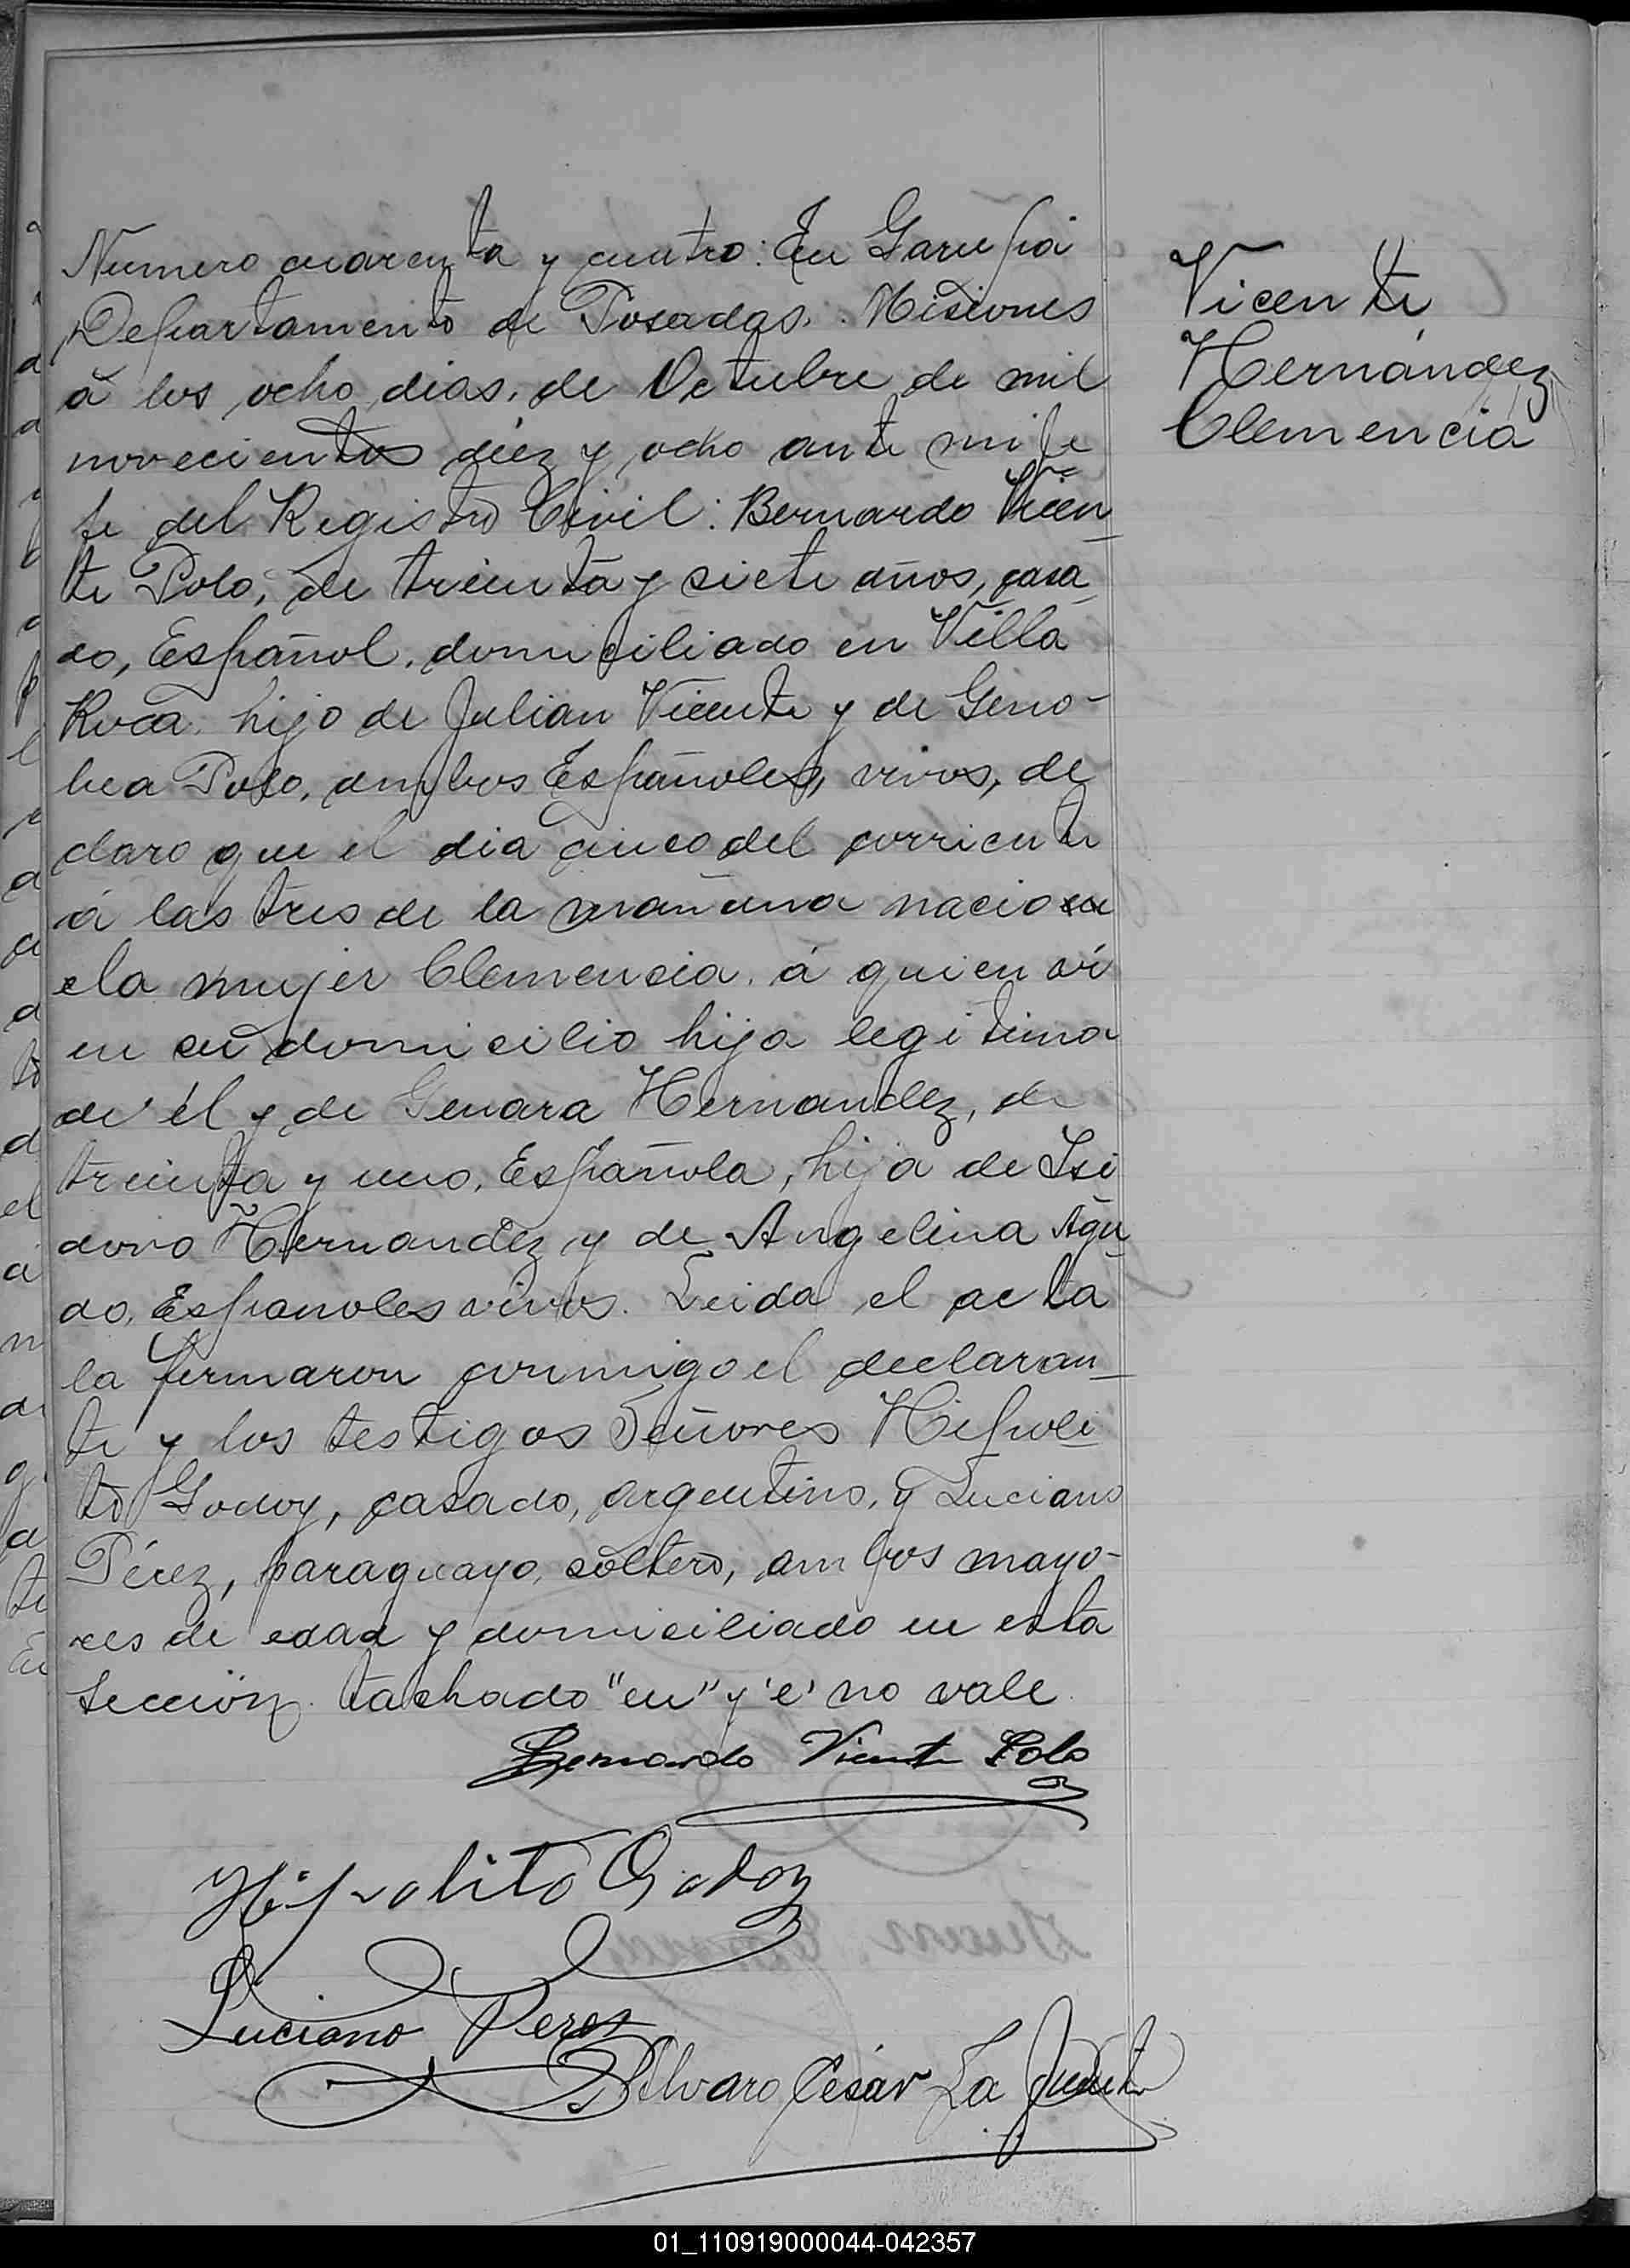 Numero cuarenta y cuatro: En Garupá
Departamento de Posadas. Misiones
á los ocho dias, de Octubre de mil
novecientos diez y ocho ante mi Je
fe del Registro Civil: Bernardo Vicen
te Polo, de treinta y siete años, casa
do, Español, domiciliado en Villa
Roca, hijo de Julian Vicente y de Geno-
bea Polo, ambos Españoles, vivos, de
claro que el dia cinco del corriente
á las tres de la mañana nacio en
ela mujer Clemencia, á quien ví
en su domicilio hija legitima
de él y de Genara Hernandez, de
treinta y uno, Española, hija de Isi
doro Hernandez y de Angelina Agu
do, Españoles vivos. Leida el acta
la firmaron conmigo el declaran
te y los testigos Señores Hipoli
to Godoy, casado, argentino, y Luciano
Pérez, paraguayo, soltero, ambos mayo-
res de edad y domiciliado en esta
sección. tachado "en" y "e" no vale
Bernardo Vicente Polo
Hipolito Godoy
Luciano Perez
Alvaro César La Fuente
Vicente
Hernández
Clemencia
01_110919000044-042357